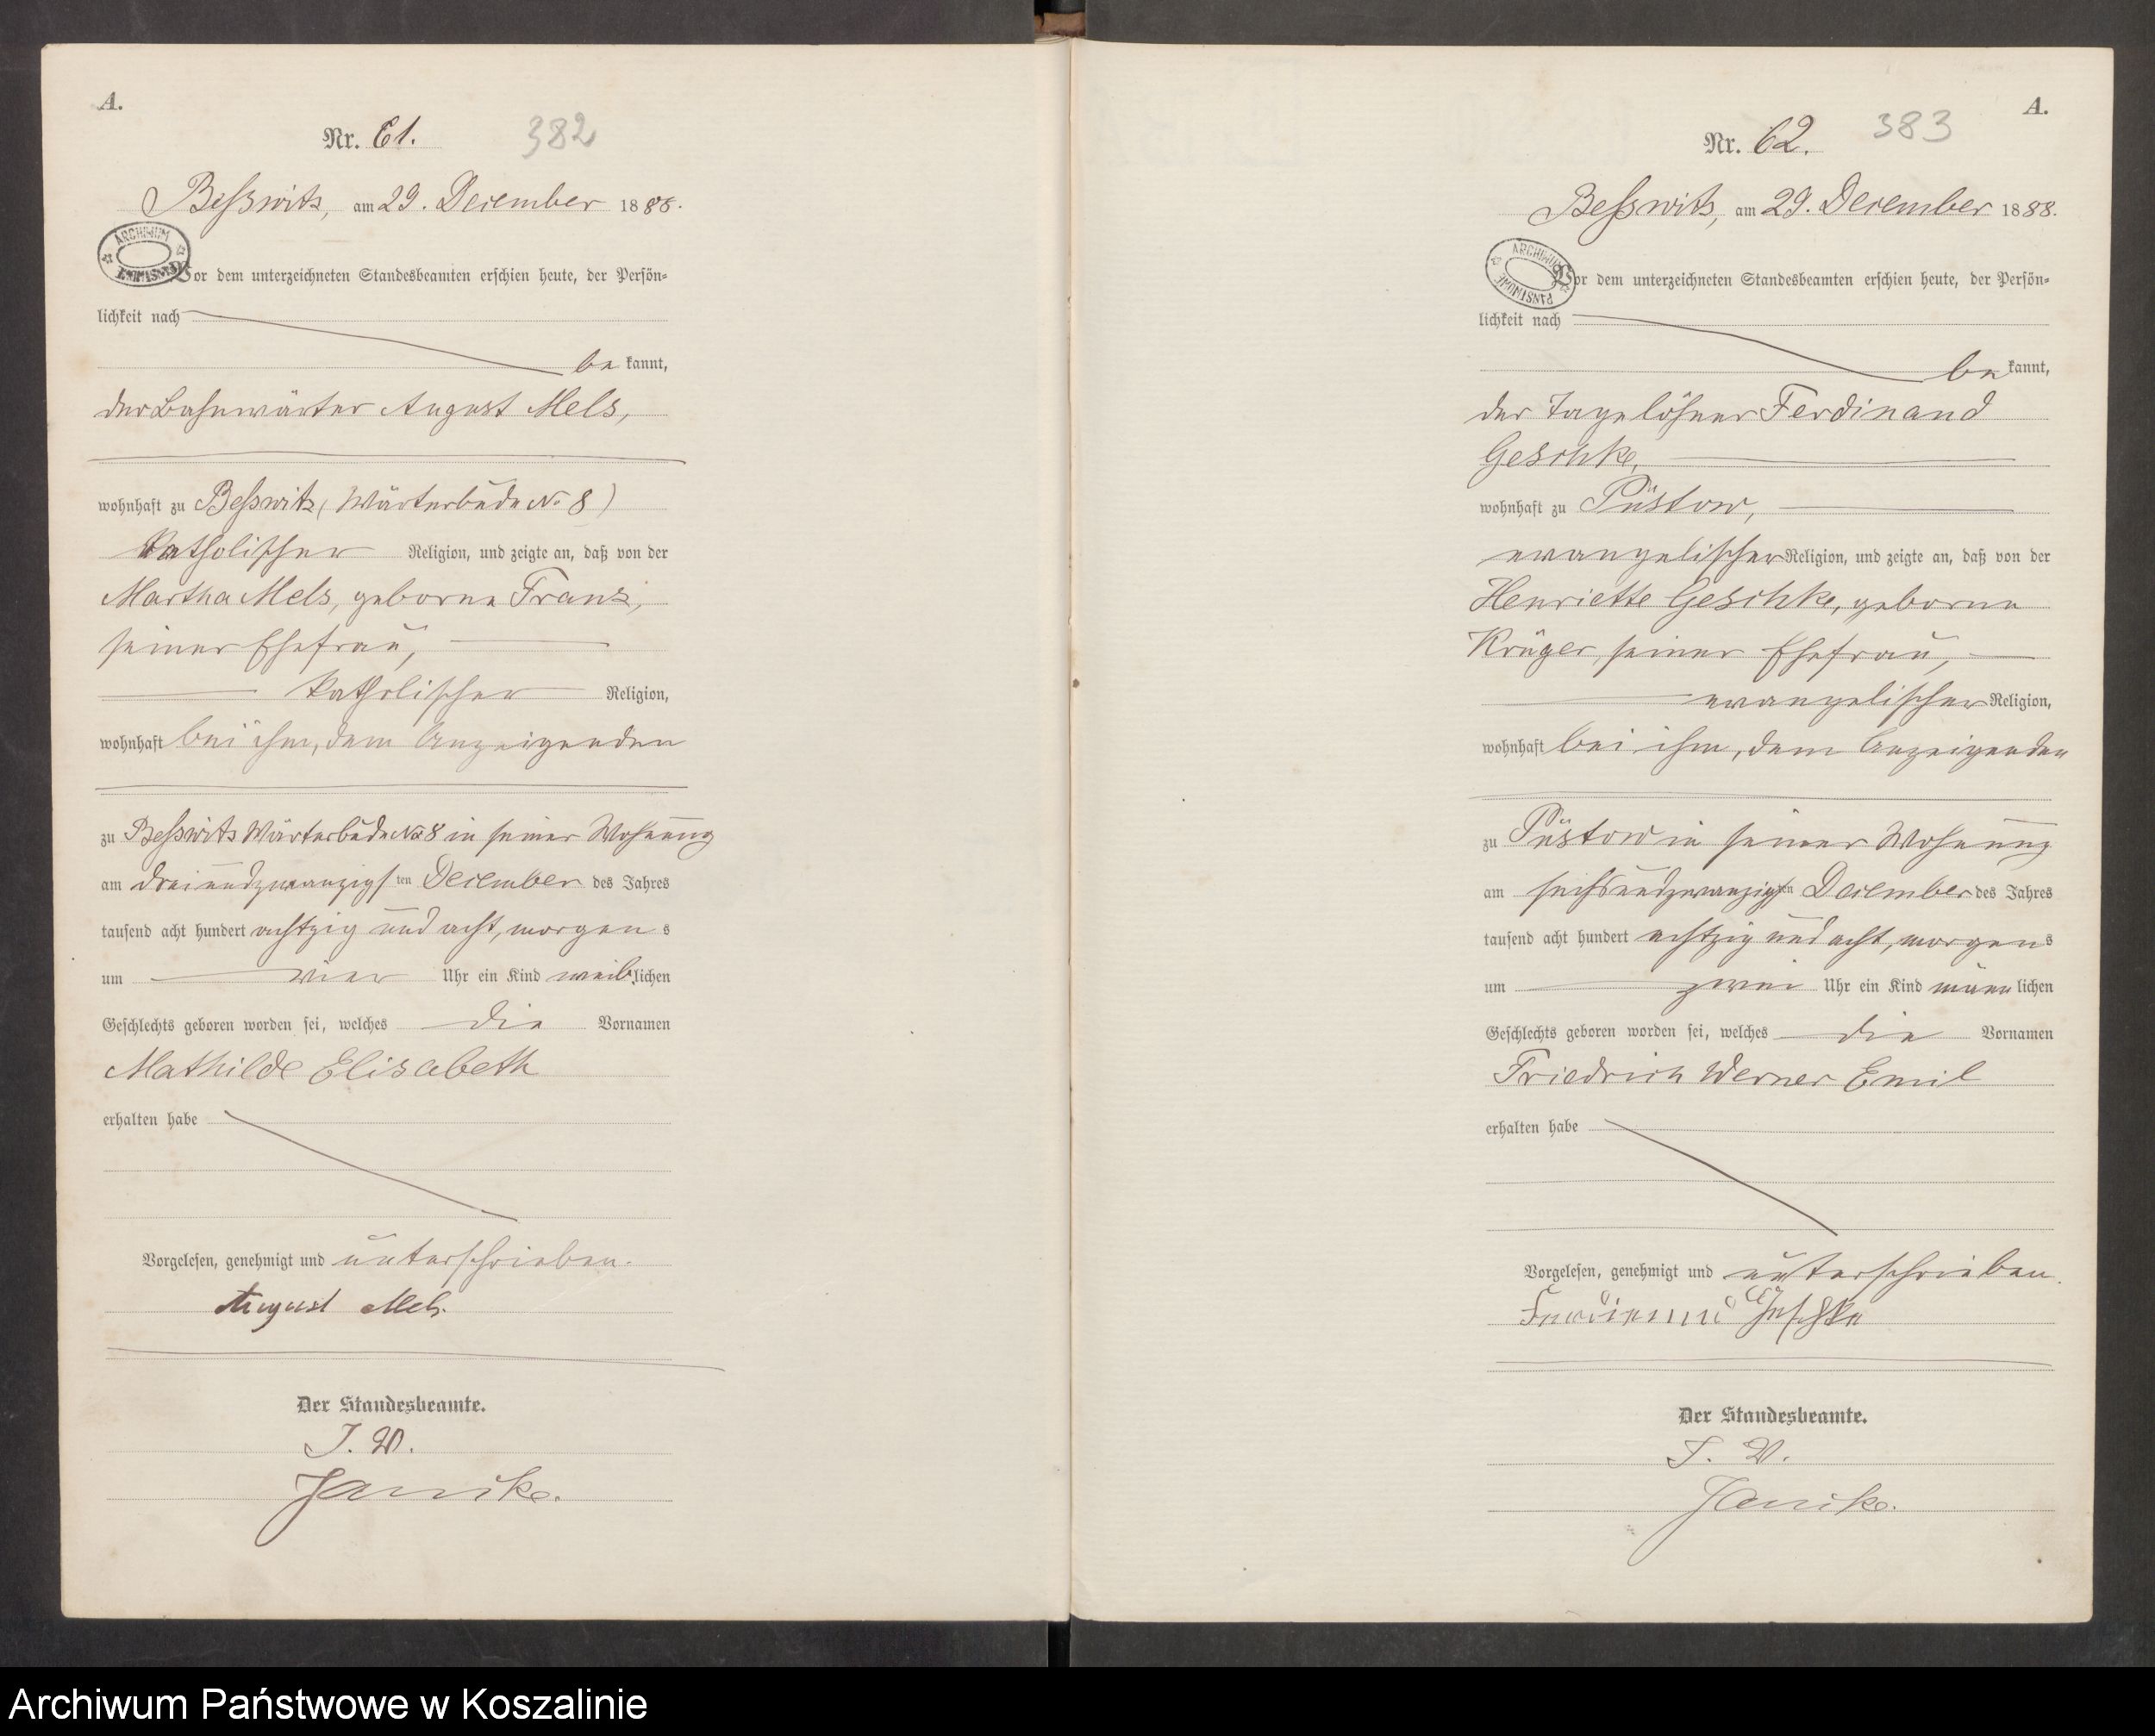 A.
Nr. 61.
382
Beßwitz, am 29. December 1888.
ARCHIWUM PAŃSTWOWE
Vor dem unterzeichneten Standesbeamten erschien heute, der Persön=
lichkeit nach
bekannt,
der Bahnwärter August Mels,
wohnhaft zu Beßwitz (Wärterbude No 8)
katholischer Religion, und zeigte an, daß von der
Martha Mels, geborne Franz,
seiner Ehefrau,
katholischer Religion,
wohnhaft bei ihm, dem Anzeigenden
zu Beßwitz Wärterbude No 8 in seiner Wohnung
am dreiundzwanzigsten December des Jahres
tausend acht hundert achtzig und acht, morgens
um vier Uhr ein Kind weiblichen
Geschlechts geboren worden sei, welches die Vornamen
Mathilde Elisabeth
erhalten habe
Vorgelesen, genehmigt und unterschrieben.
August Mels.
Der Standesbeamte.
J. V.
Janike.
A.
Nr. 62.
383
Beßwitz, am 29. December 1888.
ARCHIWUM PAŃSTWOWE
Vor dem unterzeichneten Standesbeamten erschien heute, der Persön=
lichkeit nach
bekannt,
der Tagelöhner Ferdinand
Geschke,
wohnhaft zu Püstow,
evangelischer Religion, und zeigte an, daß von der
Henriette Geschke, geborne
Krüger, seiner Ehefrau,
evangelischer Religion,
wohnhaft bei ihm, dem Anzeigenden
zu Püstow in seiner Wohnung
am sechsundzwanzigsten December des Jahres
tausend acht hundert achtzig und acht, morgens
um zwei Uhr ein Kind männlichen
Geschlechts geboren worden sei, welches die Vornamen
Friedrich Werner Emil
erhalten habe
Vorgelesen, genehmigt und unterschrieben.
Ferdienand Geschke
Der Standesbeamte.
J. V.
Janike.
Archiwum Państwowe w Koszalinie